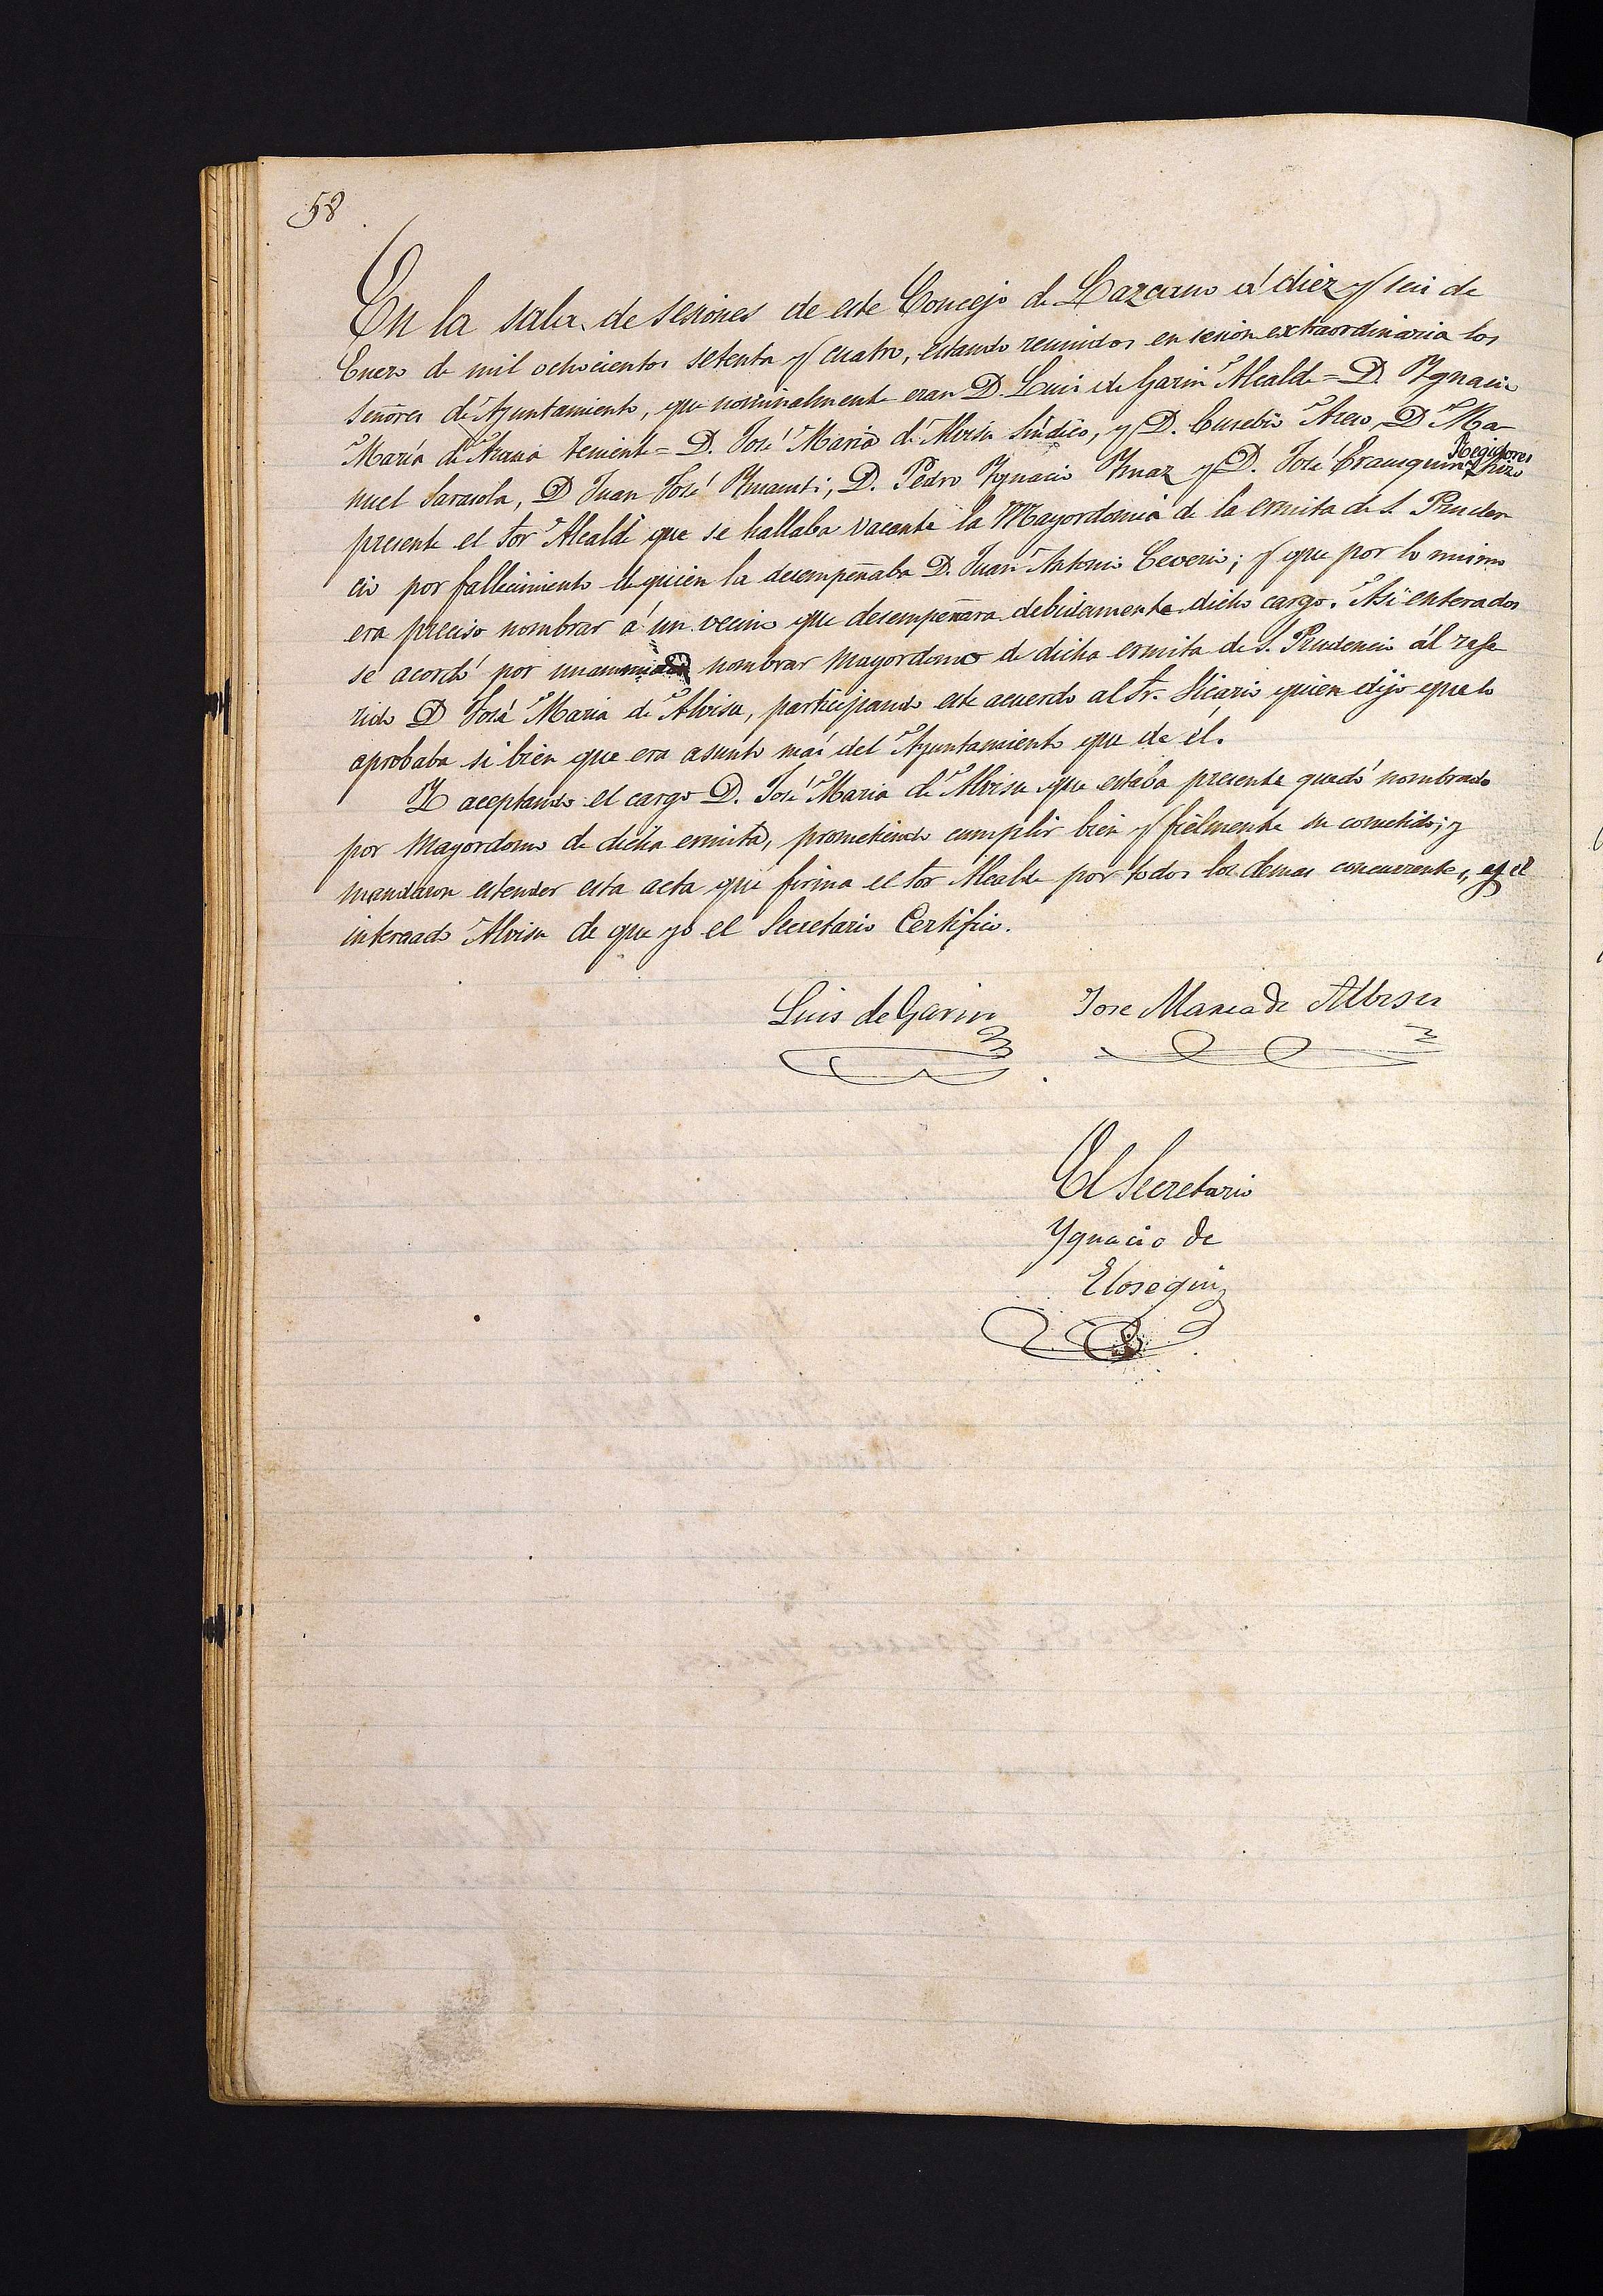 58
En la sala de sesiones de este Concejo de Lazcano á diez y seis de
Enero de mil ochocientos setenta y cuatro, estando reunidos en sesion extraordinaria los
señores de Ayuntamiento, que nominalmente eran D. Luis de Garin Alcalde = D. Ygnacio
María de Arana teniente = D. José María de Alvisu Síndico, y D. Eusebio Arew, D Ma-
nuel Sarasola, D Juan José, D. Pedro Ygnacio Ynaz y D. José Erausquin Regidores, hizo
presente el Sor Alcalde que se hallaba vacante la Mayordomia de la ermita de S. Pruden
cio por fallecimiento de quien la desempeñaba D. Juan Antonio Ceverio; y que por lo mismo
era preciso nombrar á un vecino que desempeñara debidamente dicho cargo. Asi enterados
se acordó por unanimidad nombrar mayordomo de dicha ermita de S. Prudencio ál refe
rido D José Maria de Alvisu, participando este acuerdo al Sr. Vicario quien dijo que lo
aprobaba si bien que era asunto mas del Ayuntamiento que de él.
Y aceptando el cargo D. José Maria de Alvisu que estaba presente quedó nombrado
por Mayordomo de dicha ermita, prometiendo cumplir bien y fielmente su cometido; y
mandaron estender esta acta que firma el Sor Alcalde por todos los demas concurrentes, y el
interesado Alvisu de que yo el Secretario Certifico.
Luis de Garin Jose Maria de Albisu
El Secretario
Ygnacio de
Elosegui